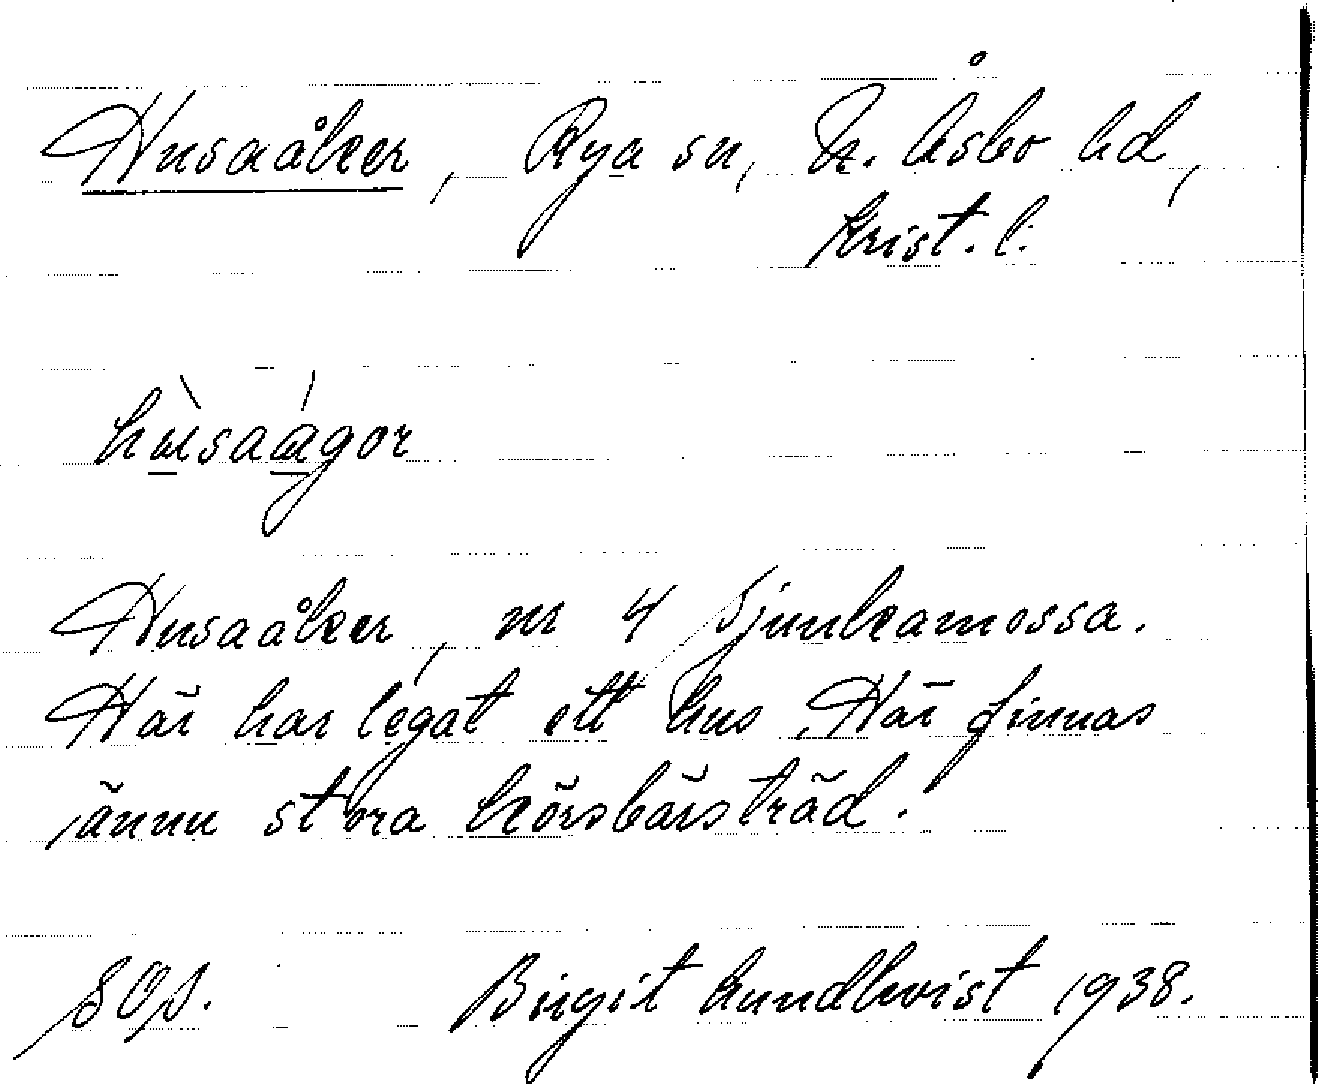 Husaåker, Rya sn, N. Åsbo hd,
Krist. l.
hùsaágor
Husaåker, nr 4 Sjunkamossa.
Här har legat ett hus. Här finnas
ännu stora körsbärsträd.
Birgit Lundkvist 1938.